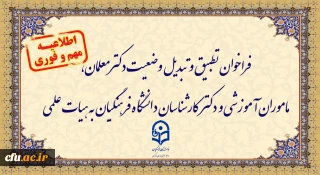 اطلاعیه
مهم و فوری
فراخوان تطبیق و تبدیل وضعیت دکتر معلمان،
ماموران آموزشی و دکتر کارشناسان دانشگاه فرهنگیان به هیات علمی
cfu.ac.ir